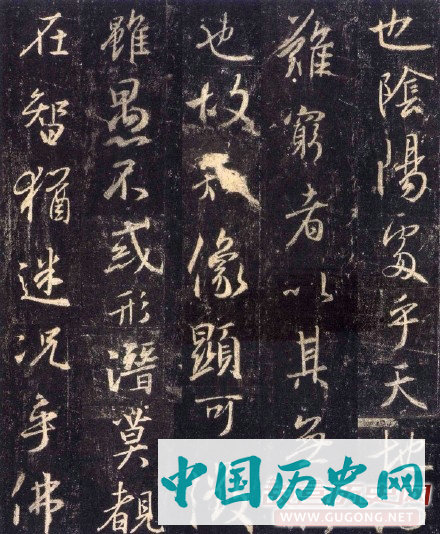 也陰陽處乎天地
難窮者以其無
也故知像顯可
雖愚不惑形潛莫覩
在智猶迷況乎佛
中国历史网
WWW.GUGONG.NET